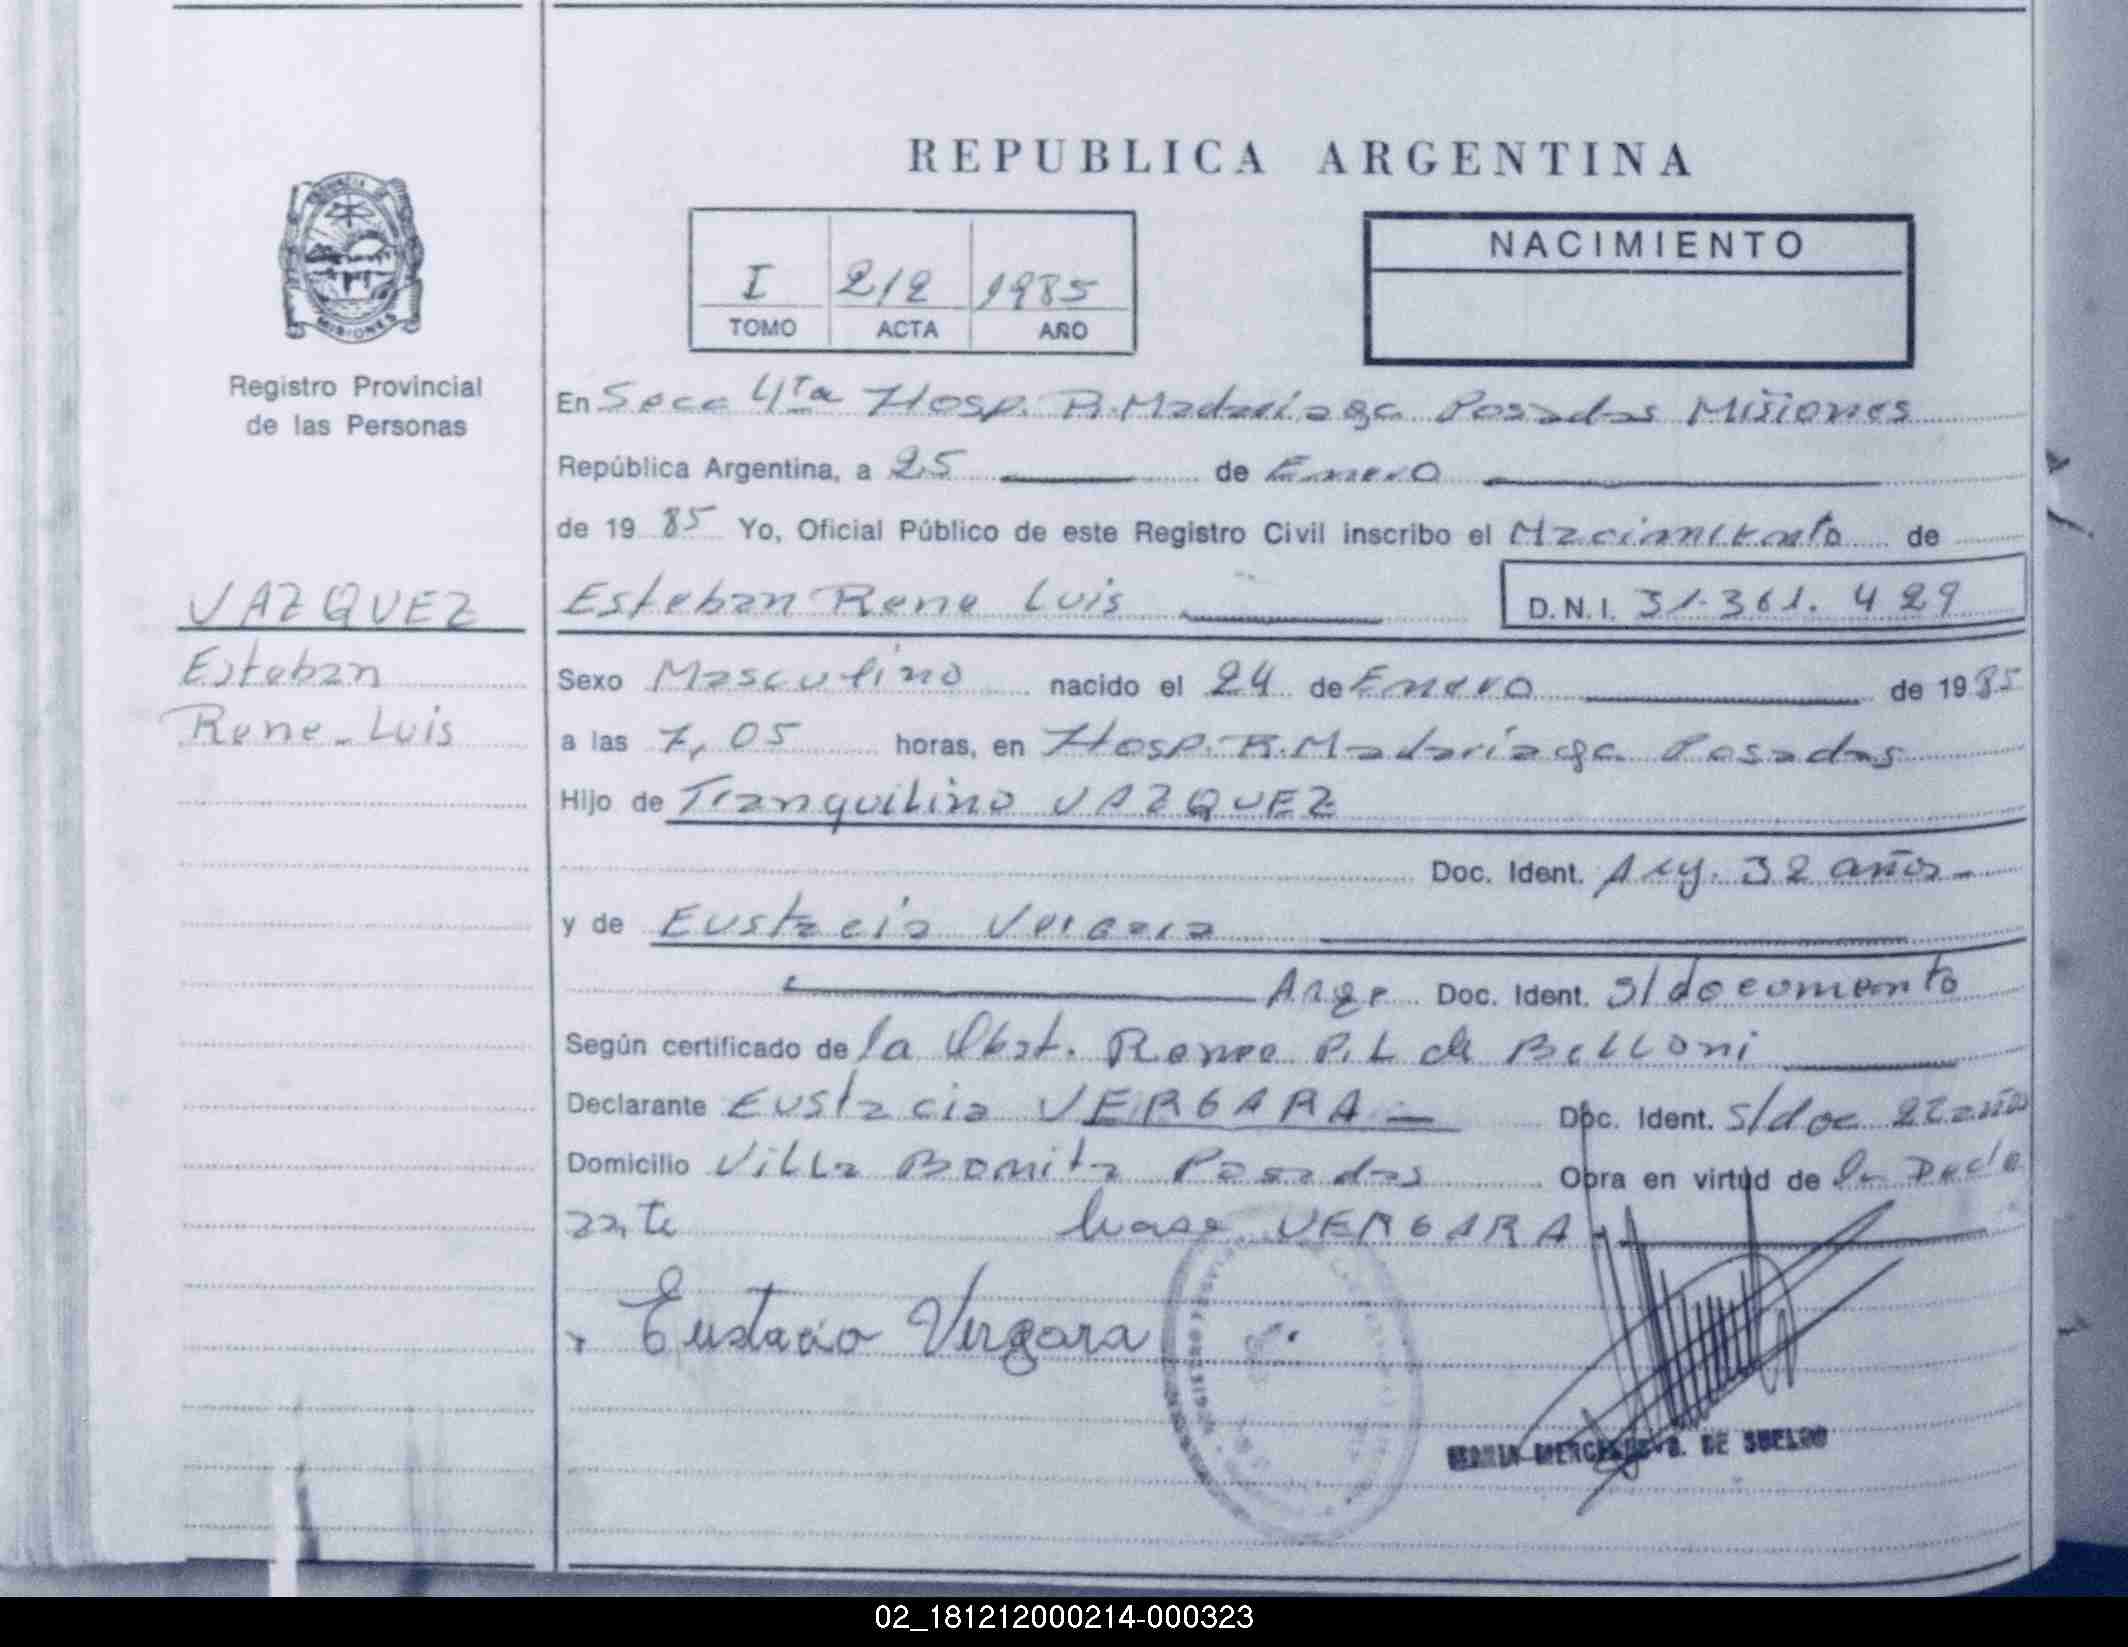 REPUBLICA ARGENTINA
I 212 1985
TOMO ACTA AÑO
NACIMIENTO
MISIONES
Registro Provincial
de las Personas
En Secc 4ta Hosp. R. Madariaga Posadas Misiones
República Argentina, a 25 de Enero
de 19 85 Yo, Oficial Público de este Registro Civil inscribo el Nacimiento de
VAZQUEZ
Esteban
Rene-Luis
Esteban Rene Luis D.N.I. 31.361.429
Sexo Masculino nacido el 24 de Enero de 19 85
a las 7,05 horas, en Hosp. R. Madariaga Posadas
Hijo de Tranquilino VAZQUEZ
Doc. Ident. Arg. 32 años
y de Eustacia Vergara
Arge Doc. Ident. s/documento
Según certificado de la Obst. Renee P. L de Belloni
Declarante Eustacia VERGARA Doc. Ident. s/doc 22 años
Domicilio Villa Bonita Posadas Obra en virtud de la Decla
rante VERGARA
Eustacia Vergara
MARIA MERCEDES B. DE SUELDO
02_181212000214-000323